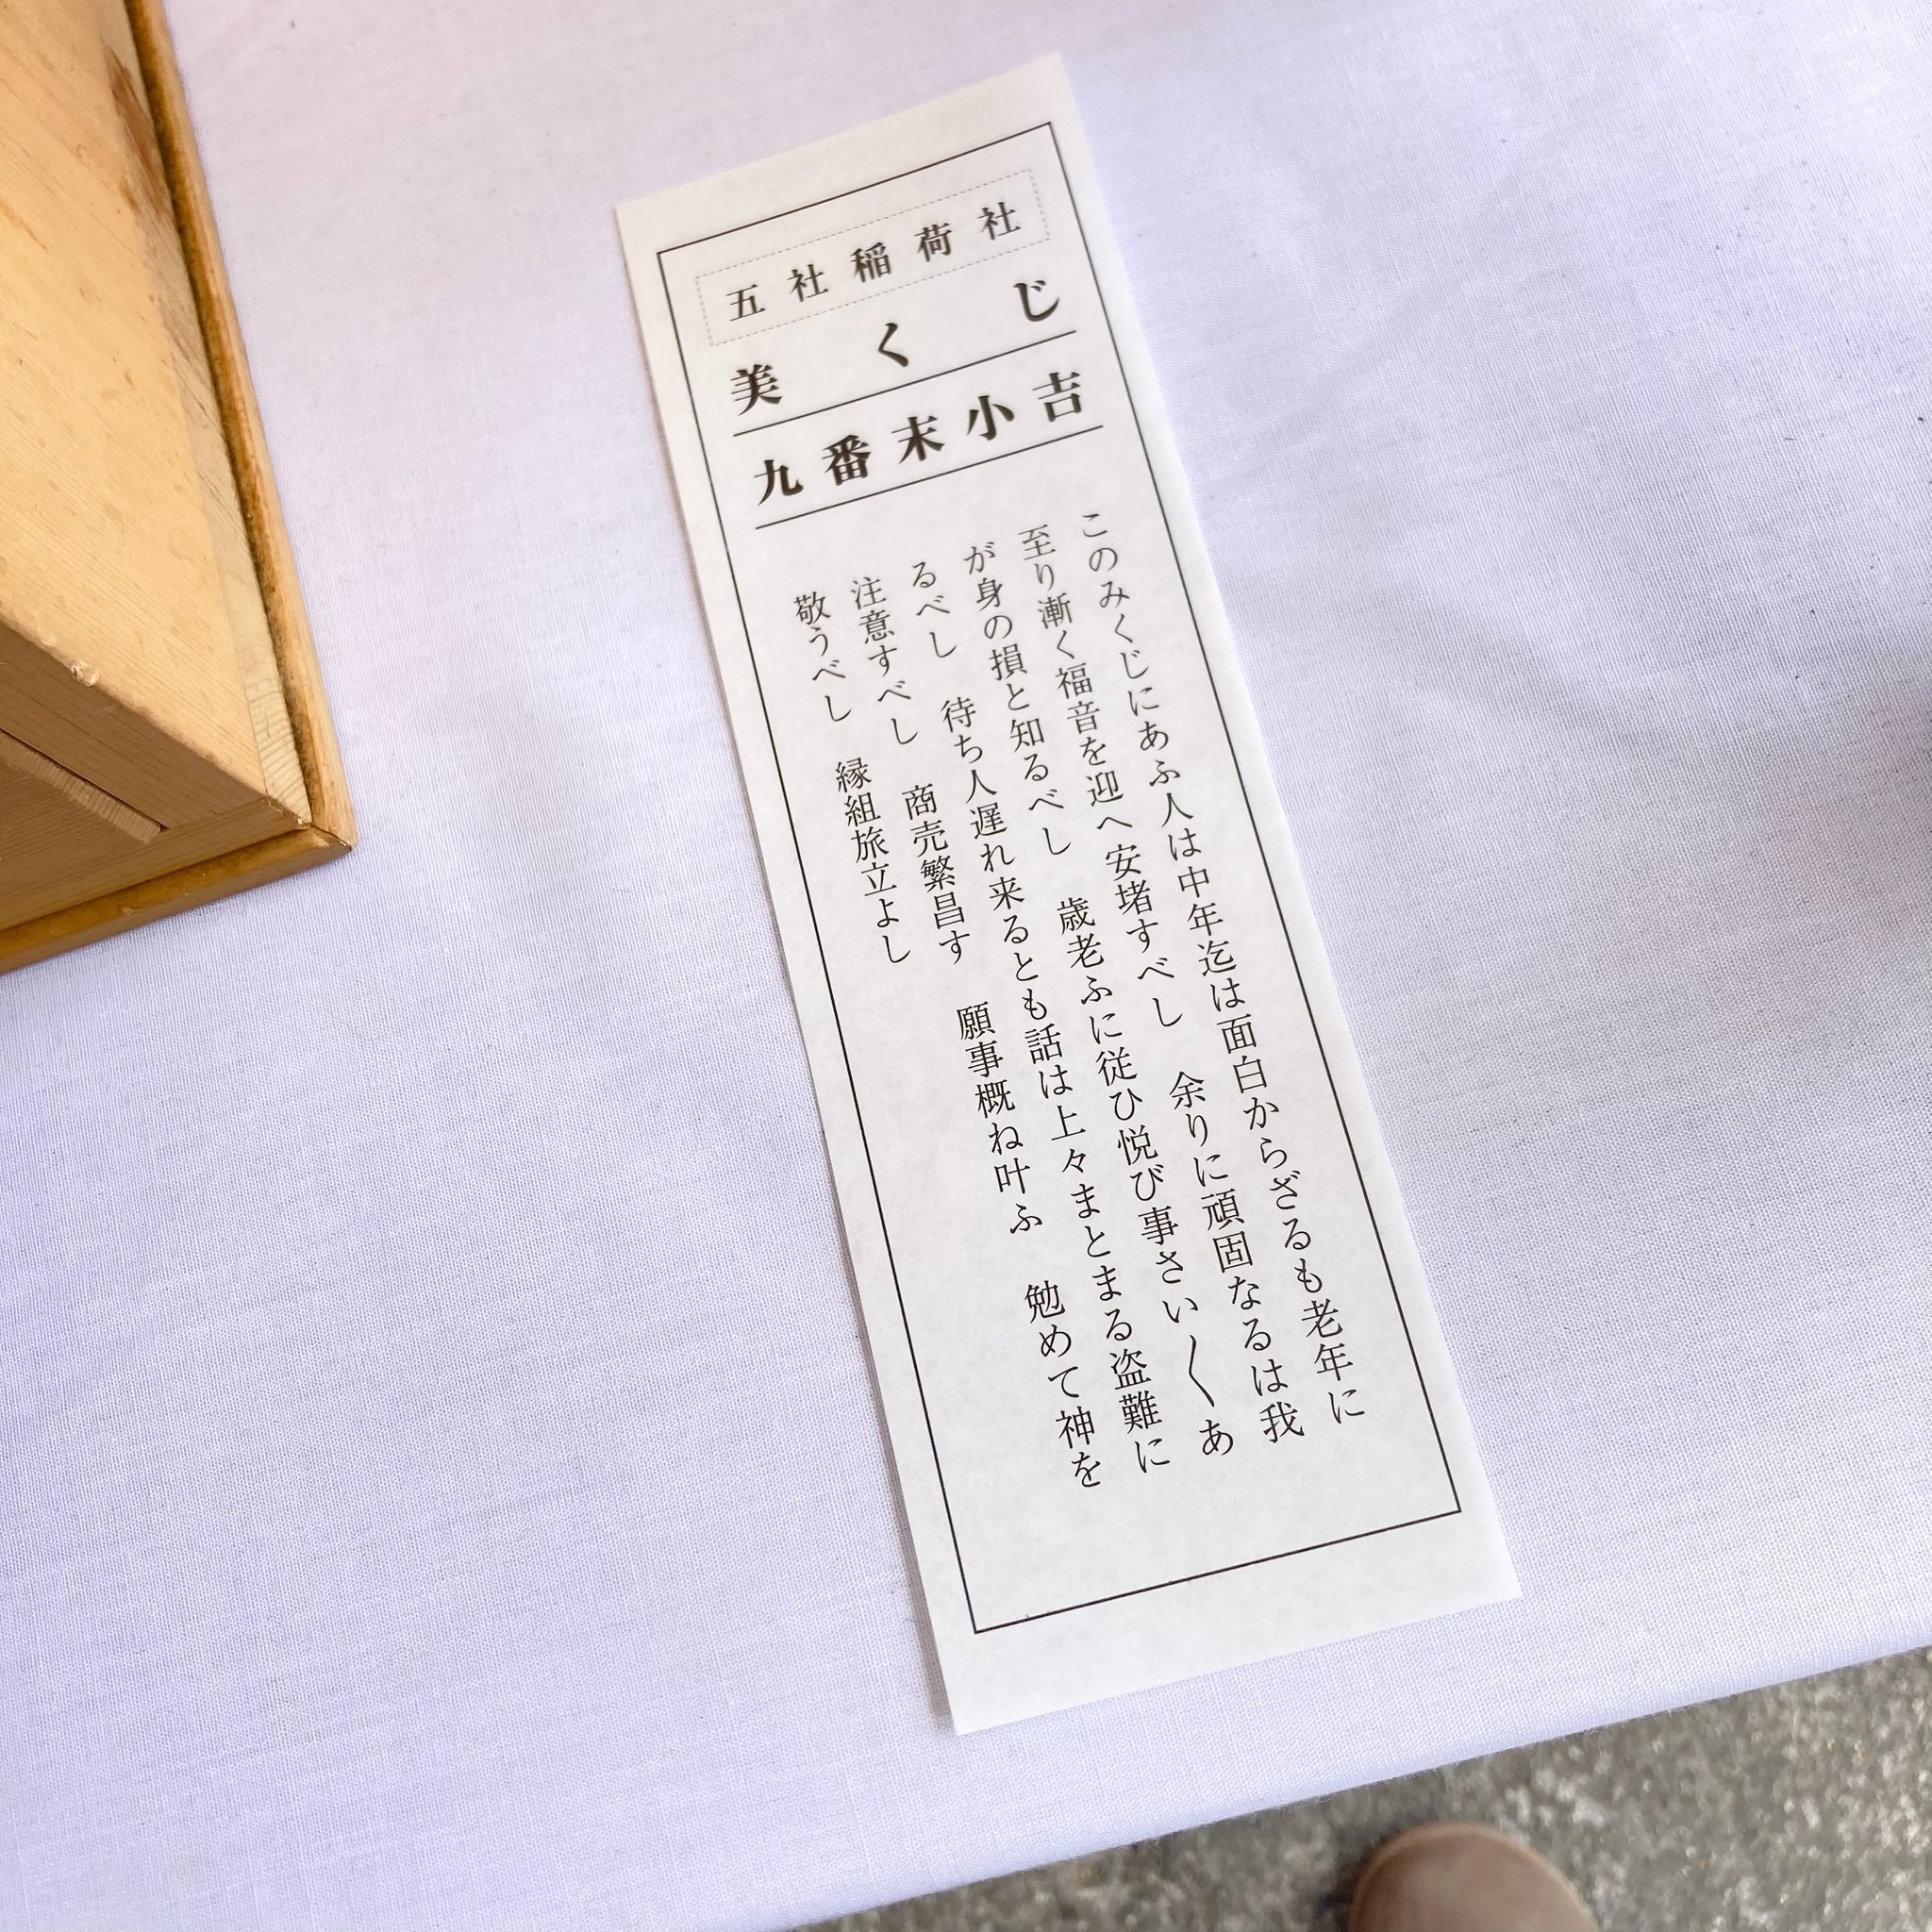 五社稲荷社
美くじ
九番末小吉
このみくじにあふ人は中年迄は面白からざるも老年に
至り漸く福音を迎へ安堵すべし　余りに頑固なるは我
が身の損と知るべし　歳老ふに従ひ悦び事さい〳〵あ
るべし　待ち人遅れ来るとも話は上々まとまる盗難に
注意すべし　商売繁昌す　願事概ね叶ふ　勉めて神を
敬うべし　縁組旅立よし